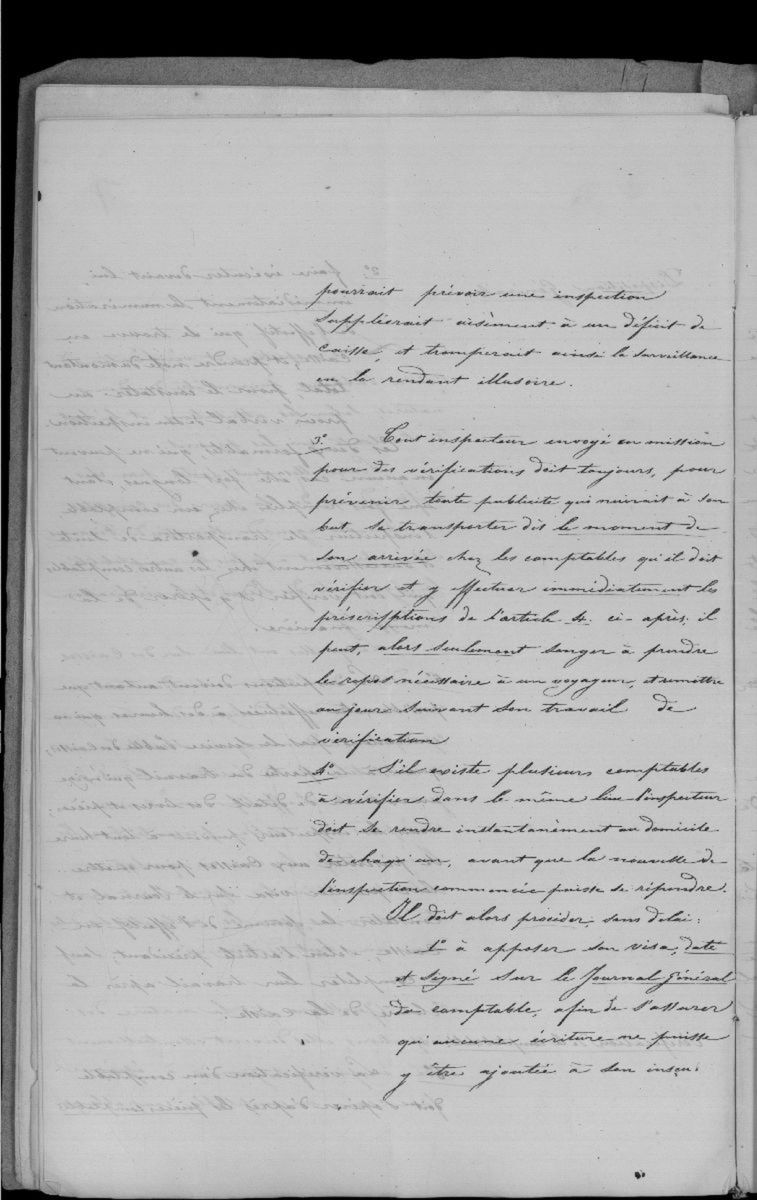 pourrait prévoir une inspection
Suppléerait aisèment à un déficit de
Caisse, et tromperait ainsi la surveillance
en la rendant illusoire.
3° Tout inspecteur envoyé en mission
pour des vérifications doit toujours, pour
prévenir toute publicité qui nuirait à son
but se transporter dès le moment de
son arrivée chez les comptables qu'il doit
vérifier et y effectuer immédiatement les
préscripptions de l'article 4: ci-après: il
peut, alors seulement songer à prendre
le repos nécessaire à un voyageur, et remettre
au jour suivant son travail de
vérification
4° S'il existe plusieurs comptables
à vérifier dans le même lieu l'inspecteur
doit se rendre instantanément au domicile
de chaqu'un, avant que la nouvelle de
l'inspection commencée puisse se répondre.
Il doit alors procéder, sans delai:
1° à apposer son visa, daté
et signé sur le Journal général
du comptable, afin de s'assurer
qu'aucune écriture ne puisse
y être ajoutée à son insçu: